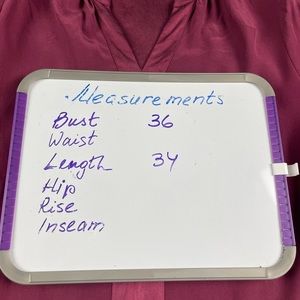 Measurements
Bust 36
Waist
Length 34
Hip
Rise
Inseam